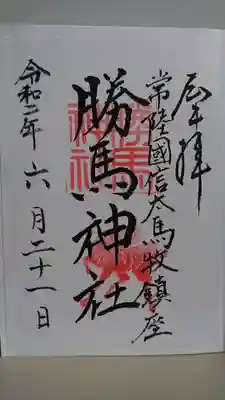 奉拝
常陸國信太馬牧鎮座
勝馬神社
令和二年 六月二十一日
勝馬神社